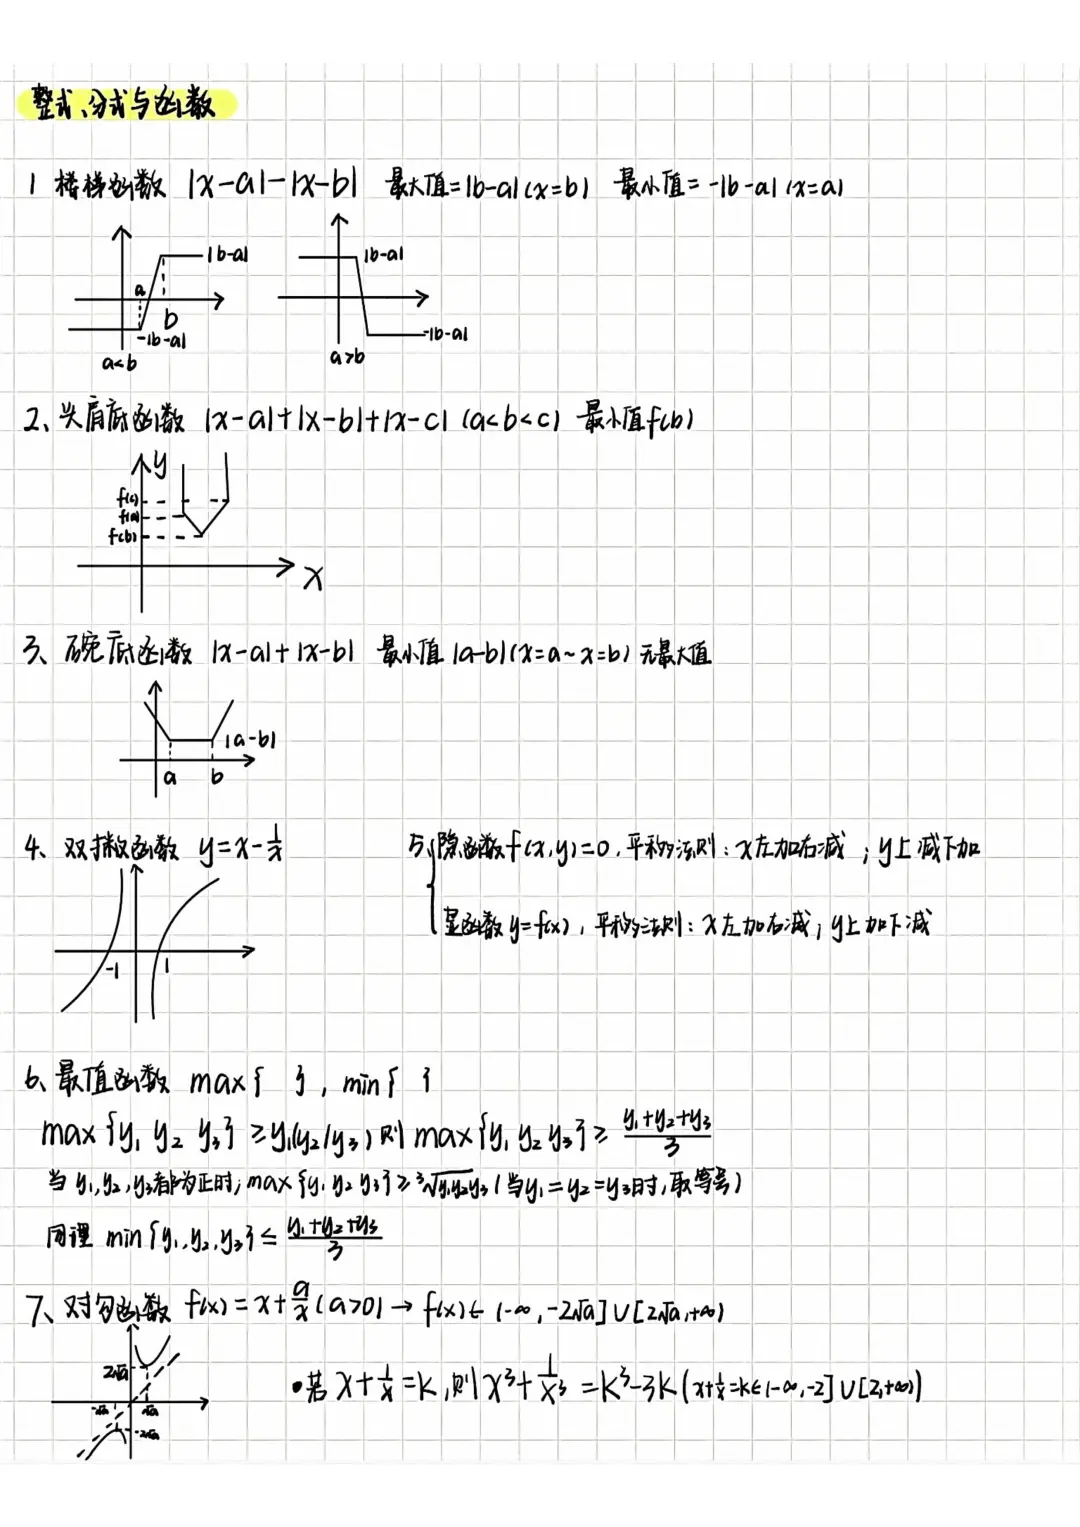 整式、分式与函数
1 楼梯函数 |x-a|-|x-b| 最大值=|b-a|(x=b) 最小值=-|b-a|(x=a)
|b-a|
a
b
-|b-a|
a<b
|b-a|
-|b-a|
a>b
2、头肩底函数 |x-a|+|x-b|+|x-c| (a<b<c) 最小值f(b)
y
f(c)
f(a)
f(b)
x
3、碗底函数 |x-a|+|x-b| 最小值|a-b|(x=a~x=b) 无最大值
|a-b|
a b
4、双撇函数 y=x-1/x
-1 1
5、隐函数f(x,y)=0,平移法则:x左加右减;y上减下加
显函数y=f(x),平移法则:x左加右减;y上加下减
6、最值函数 max{ }, min{ }
max{y₁ y₂ y₃}≥y₁(y₂/y₃)则max{y₁ y₂ y₃}≥(y₁+y₂+y₃)/3
当y₁,y₂,y₃都为正时,max{y₁ y₂ y₃}≥³√y₁y₂y₃(当y₁=y₂=y₃时,取等号)
同理 min{y₁,y₂,y₃}≤(y₁+y₂+y₃)/3
7、对勾函数 f(x)=x+a/x(a>0)→f(x)∈(-∞,-2√a]∪[2√a,+∞)
2√a
-√a √a
-2√a
•若x+1/x=K,则x³+1/x³=K³-3K(x+1/x=K∈(-∞,-2]∪[2,+∞))